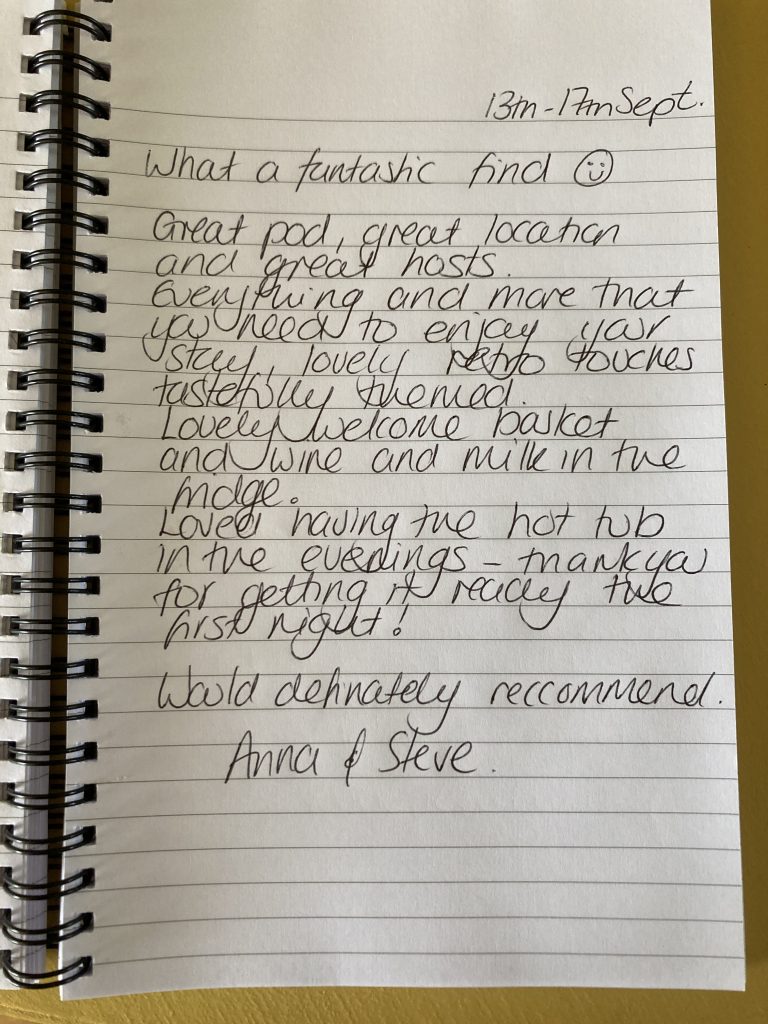 13th - 17th Sept.
What a funtastic find ☺
Great pod, great location
and great hosts.
Everything and more that
you need to enjoy your
stay, lovely retro touches
tastefully themed.
Lovely welcome basket
and wine and milk in the
fridge.
Loved having the hot tub
in the evenings - thank you
for getting it ready the
first night!
Would definately reccommend.
Anna & Steve.